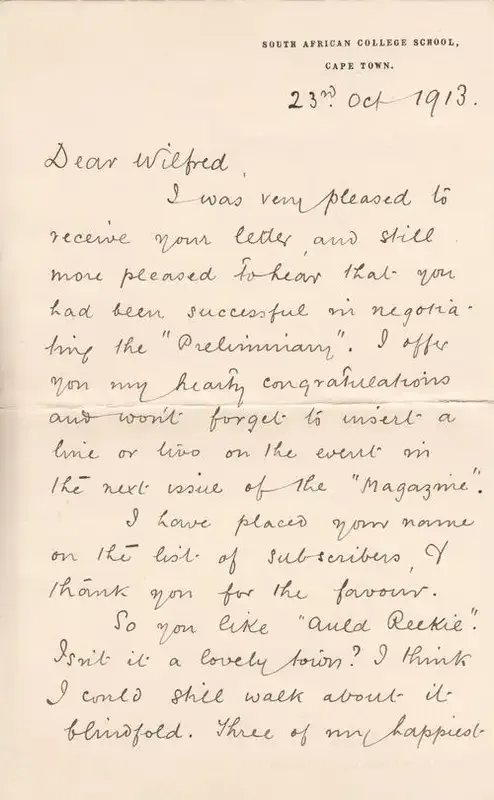 SOUTH AFRICAN COLLEGE SCHOOL,
CAPE TOWN.
23rd Oct 1913.
Dear Wilfred,
I was very pleased to
receive your letter, and still
more pleased to hear that you
had been successful in negotia-
ting the "Preliminary". I offer
you my hearty congratulations
and won't forget to insert a
line or two on the event in
the next issue of the "Magazine".
I have placed your name
on the list of subscribers, &
thank you for the favour.
So you like "Auld Reekie".
Isn't it a lovely town? I think
I could still walk about it
blindfold. Three of my happiest